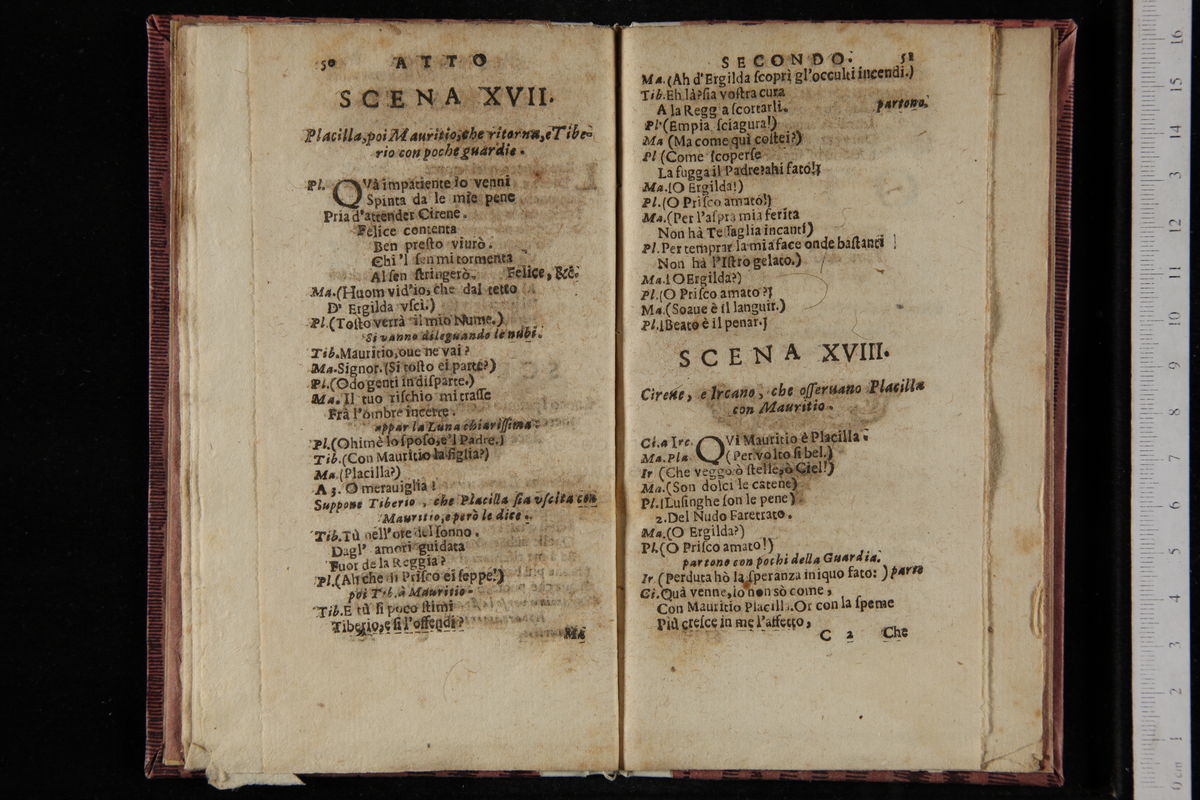 50 ATTO
SCENA XVII.
Placilla, poi Mauritio, che ritorna, e Tibe-
rio con poche guardie.
Pl. QVà impatiente io venni
Spinta da le mie pene
Pria d'attender Cirene.
Felice contenta
Ben presto viurò.
Chi 'l sen mi tormenta
Al sen stringerò. Felice, &c.
Ma. (Huom vid'io, che dal tetto
D' Ergilda vscì.)
Pl. (Tosto verrà il mio Nume.)
Si vanno dileguando le nubi.
Tib. Mauritio, oue ne vai?
Ma. Signor. (Si tosto ei parte?)
Pl. (Odo genti in disparte.)
Ma. Il tuo rischio mi trasse
Frà l'ombre incerte.
appar la Luna chiarissima.
Pl. (Ohimè lo sposo, e'l Padre.)
Tib. (Con Mauritio la figlia?)
Ma. (Placilla?)
A 3. O merauiglia!
Suppone Tiberio, che Placilla sia vscita con
Mauritio, e però le dice.
Tib. Tù nell'ore del sonno.
Dagl' amori guidata
Fuor de la Reggia?
Pl. (Ah che di Prisco ei seppe!)
poi Tib. à Mauritio.
Tib. E tù sì poco stimi
Tiberio, e sì l'offendi?
Ma
SECONDO. 51
Ma. (Ah d'Ergilda scoprì gl'occulti incendi.)
Tib. Eh là? sia vostra cura
A la Regg a scortarli. partono.
Pl (Empia sciagura!)
Ma (Ma come qui costei?)
Pl (Come scoperse
La fugga il Padre? ahi fato!)
Ma. (O Ergilda!)
Pl. (O Prisco amato!)
Ma. (Per l'aspra mia ferita
Non hà Tessaglia incanti)
Pl. Per temprar la mia face onde bastanti
Non hà l'Istro gelato.)
Ma. (O Ergilda?)
Pl. (O Prisco amato?)
Ma. (Soaue è il languir.)
Pl. (Beato è il penar.)
SCENA XVIII.
Cirene, e Ircano, che osseruano Placilla
con Mauritio.
Ci. a Irc. QVì Mauritio è Placilla.
Ma. Pla (Per volto sì bel.)
Ir (Che veggo ò stelle, ò Ciel!)
Ma. (Son dolci le catene)
Pl. (Lusinghe son le pene)
2. Del Nudo Faretrato.
Ma. (O Ergilda?)
Pl. (O Prisco amato!)
partono con pochi della Guardia.
Ir (Perduta hò la speranza iniquo fato:) parte
Ci. Quà venne, io non sò come,
Con Mauritio Placilla. Or con la speme
Più cresce in me l'affetto,
C 2 Che